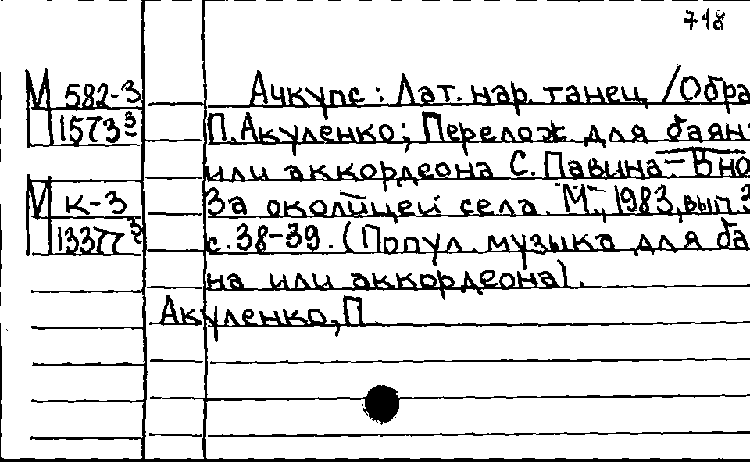 718
М 582-3 Ачкупс: Лат. нар. танец /Обра
П 1573³ П. Акуленко; Перелож. для баян
или аккордеона С. Павина. – В но
М К-3 За околицей села. М., 1983, вып. 3
П 13377³ с. 38-39. (Попул. музыка для ба
на или аккордеона).
Акуленко, П